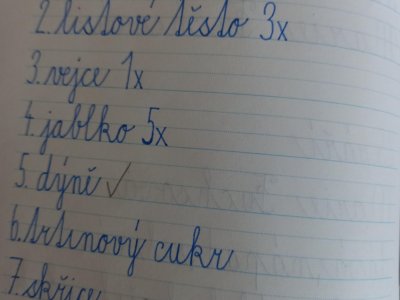 2. listové těsto 3x
3. vejce 1x
4. jablko 5x
5. dýně ✓
6. třtinový cukr
7. skřice